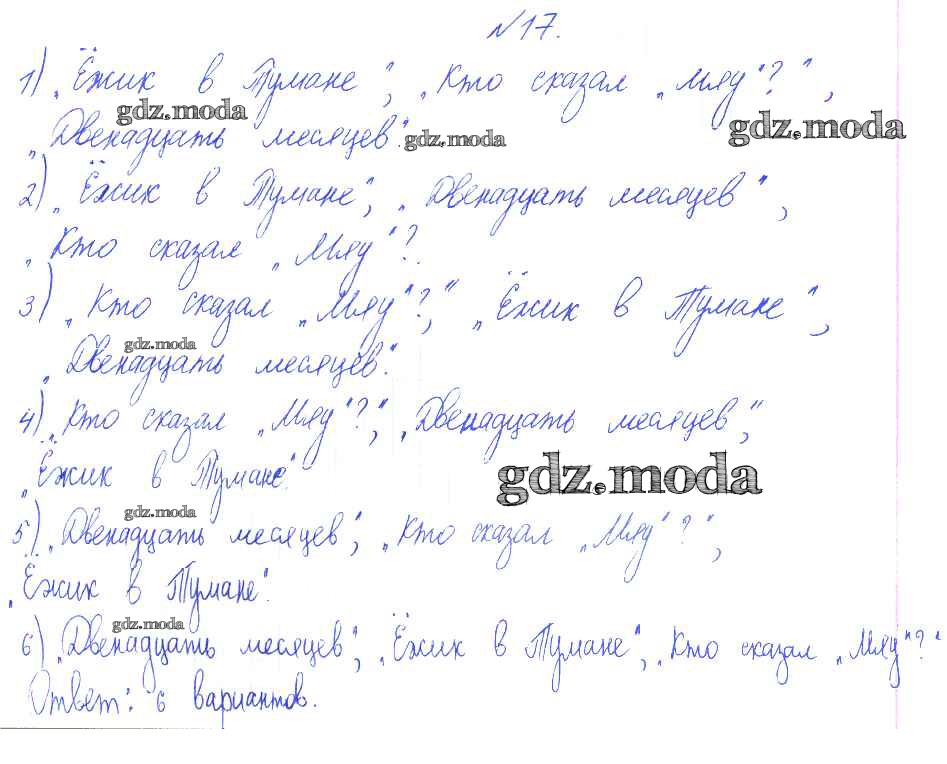 №17.
1) „Ёжик в Тумане", „Кто сказал „Мяу"?",
gdz.moda
gdz.moda
„Двенадцать месяцев".
gdz.moda
2) „Ёжик в Тумане", „Двенадцать месяцев",
„Кто сказал „Мяу"?.
3) „Кто сказал „Мяу"?," „Ёжик в Тумане",
gdz.moda
„Двенадцать месяцев".
4) „Кто сказал „Мяу"?", „Двенадцать месяцев",
„Ёжик в Тумане".
gdz.moda
gdz.moda
5) „Двенадцать месяцев", „Кто сказал „Мяу"?",
„Ёжик в Тумане".
gdz.moda
6) „Двенадцать месяцев", „Ёжик в Тумане", „Кто сказал „Мяу"?"
Ответ: 6 вариантов.